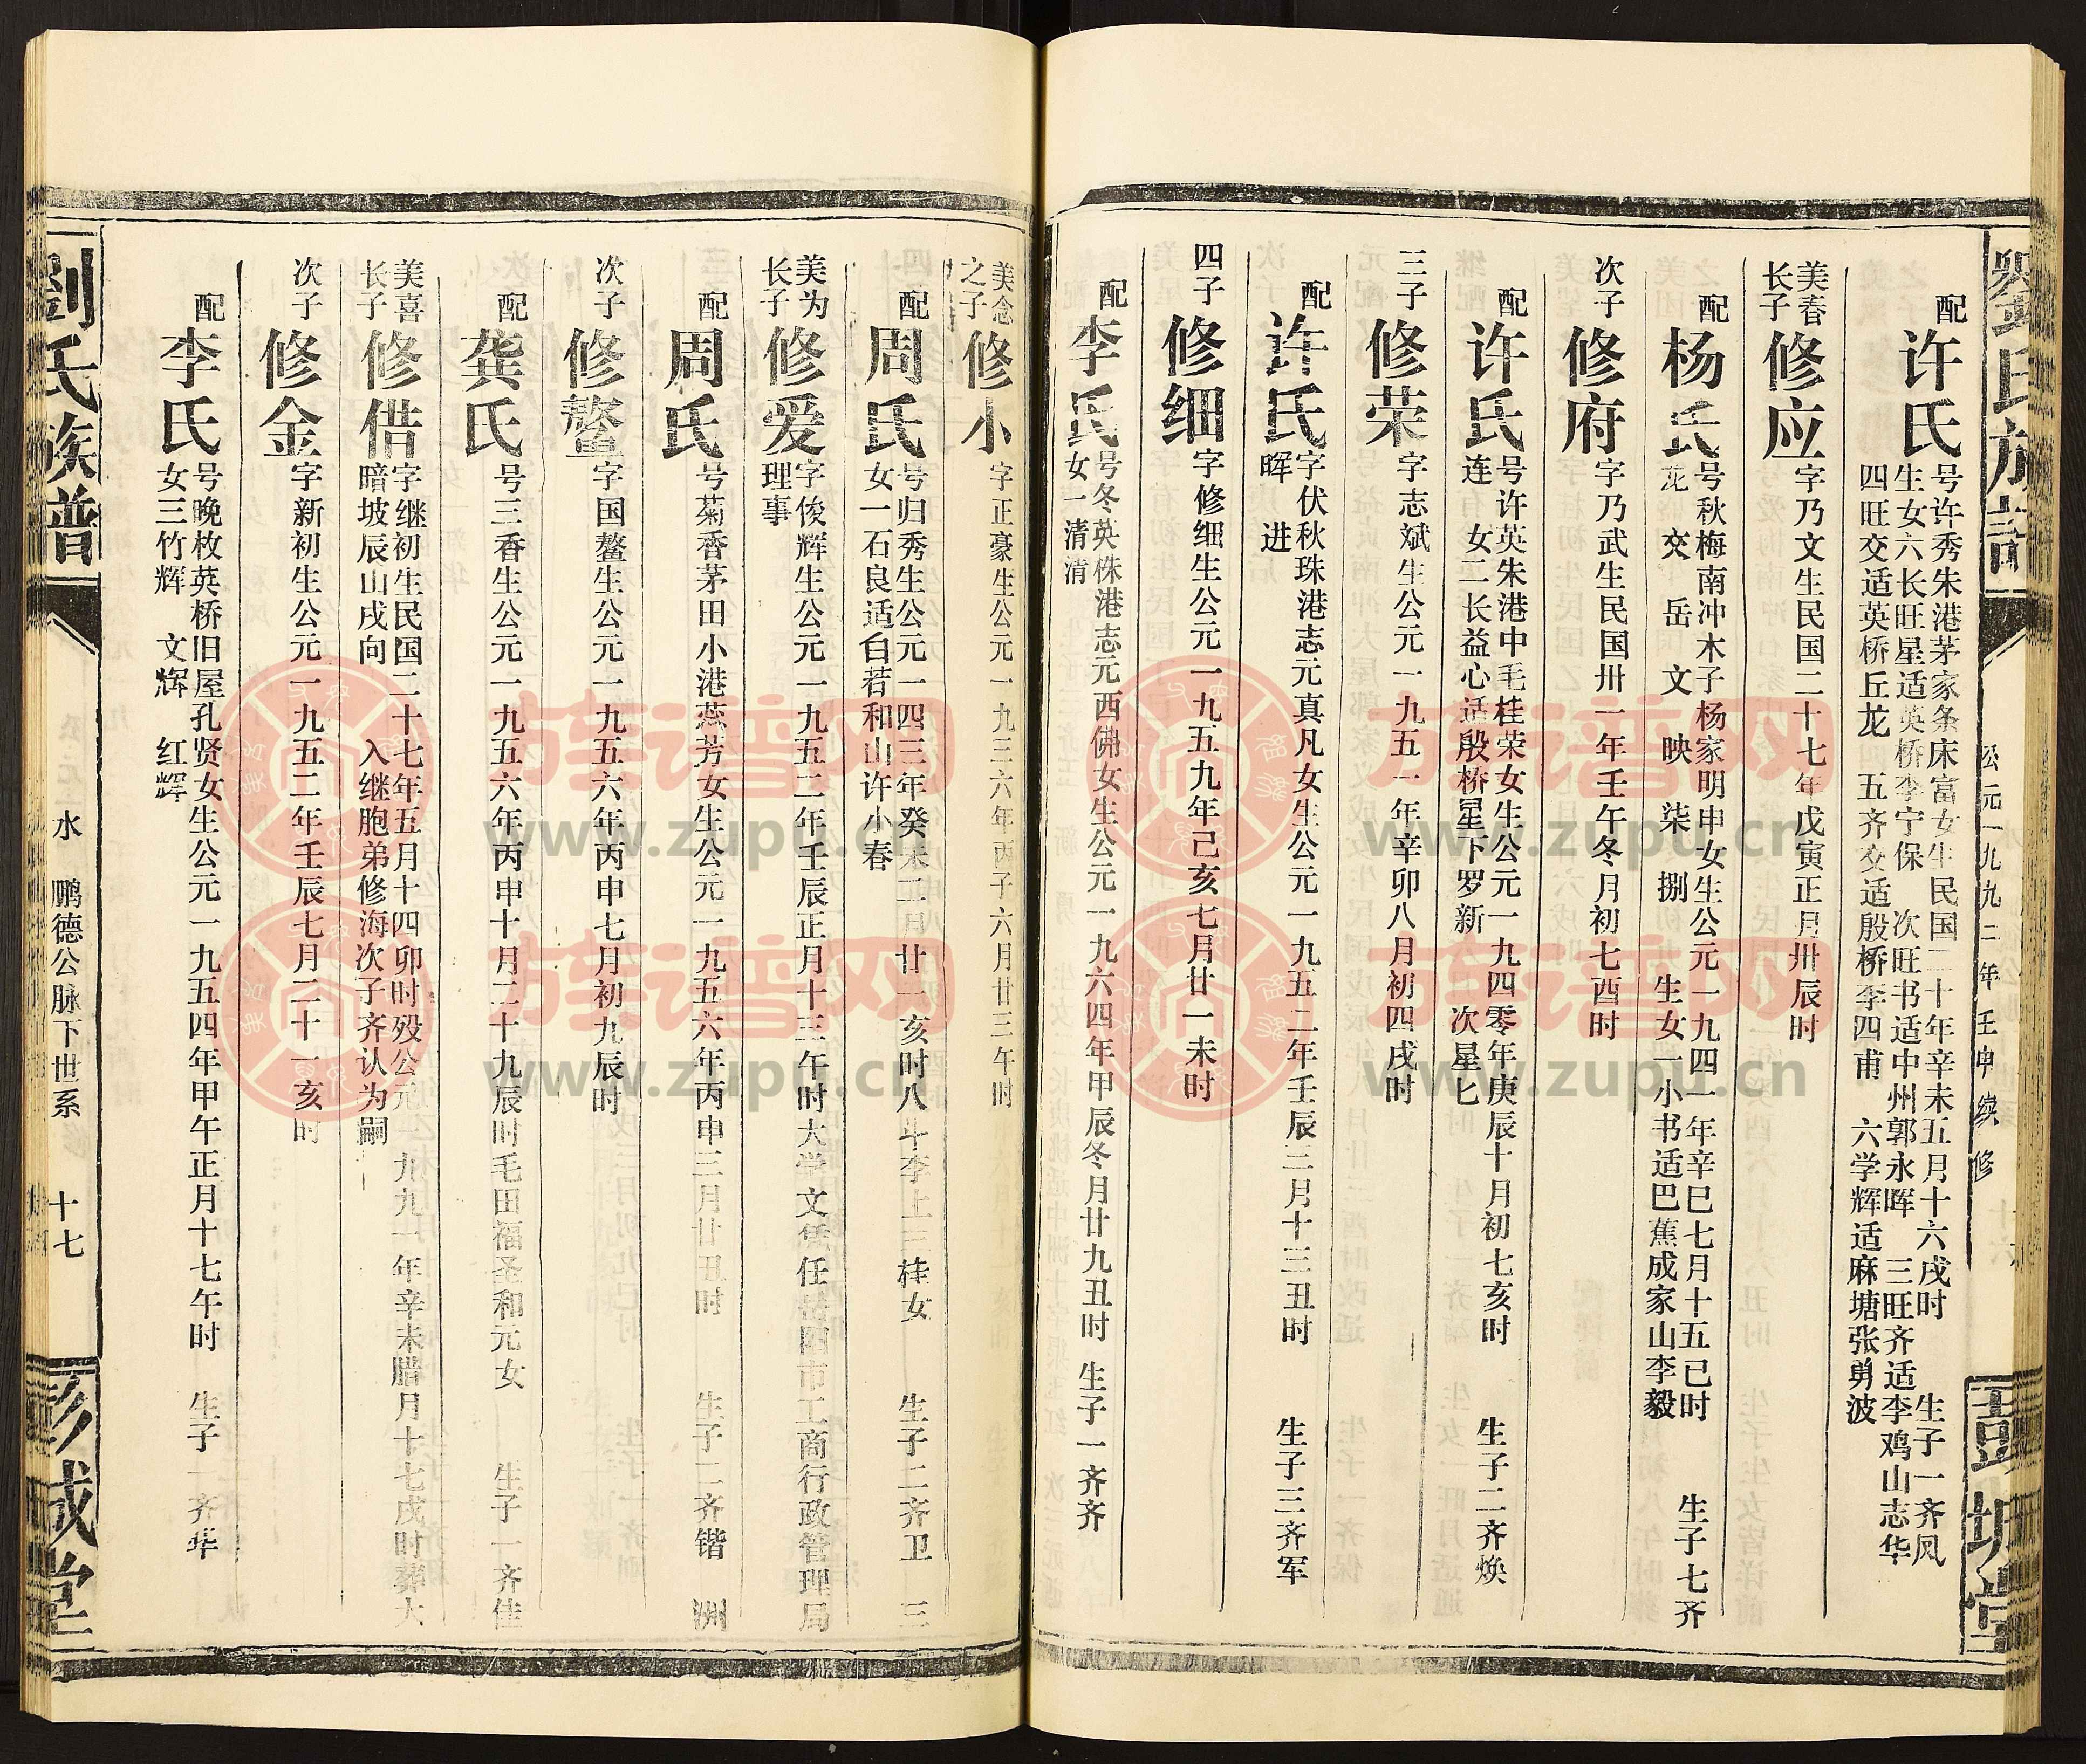 劉氏族譜
公元一九九二年壬申续修
彭城堂
配
许氏
号许秀朱港茅家条床富女生民国二十年辛未五月十六戌时 生子一齐凤
生女六长旺星适英桥李宁保 次旺书适中州郭永晖 三旺齐适李鸡山志华
四旺交适英桥丘龙 五齐交适殷桥李四甫 六学辉适麻塘张勇波
美春
长子
修应
字乃文生民国二十七年戊寅正月卅辰时
配
杨氏
号秋梅南冲木子杨家明申女生公元一九四一年辛巳七月十五巳时 生子七齐
龙 交 岳 文 映 柒 捌 生女一小书适巴蕉成家山李毅
次子
修府
字乃武生民国卅一年壬午冬月初七酉时
配
许氏
号许英朱港中毛桂荣女生公元一九四零年庚辰十月初七亥时 生子二齐焕
连 女二长益心适殷桥星下罗新 次星七
三子
修荣
字志斌生公元一九五一年辛卯八月初四戌时
配
许氏
字伏秋珠港志元真凡女生公元一九五二年壬辰三月十三丑时 生子三齐军
晖 进
四子
修细
字修细生公元一九五九年己亥七月廿一未时
配
李氏
号冬英株港志元西佛女生公元一九六四年甲辰冬月廿九丑时 生子一齐齐
女一清清
美念
之子
修小
字正豪生公元一九三六年丙子六月廿三午时
配
周氏
号归秀生公元一四三年癸未二月廿一亥时八斗李上三桂女 生子二齐卫 三
女一石良适白若和山许小春
美为
长子
修爱
字俊辉生公元一九五二年壬辰正月十三午时大学文任任岳阳市工商行政管理局
理事
配
周氏
号菊香茅田小港燕芳女生公元一九五六年丙申三月廿丑时 生子二齐锴 洲
次子
修鳌
字国鳌生公元一九五六年丙申七月初九辰时
配
龚氏
号三香生公元一九五六年丙申十月二十九辰时毛田福圣和元女 生子一齐佳
美喜
长子
修借
字继初生民国二十七年五月十四卯时殁公元一九九一年辛未腊月十七戌时葬大
暗坡辰山戌向 入继胞弟修海次子齐认为嗣
次子
修金
字新初生公元一九五二年壬辰七月二十一亥时
配
李氏
号晚枚英桥旧屋孔贤女生公元一九五四年甲午正月十七午时 生子一齐华
女三竹辉 文辉 红辉
劉氏族譜
水 鹏德公脉下世系 十七
彭城堂
族谱网
www.zupu.cn
族谱网
www.zupu.cn
族谱网
www.zupu.cn
族谱网
www.zupu.cn